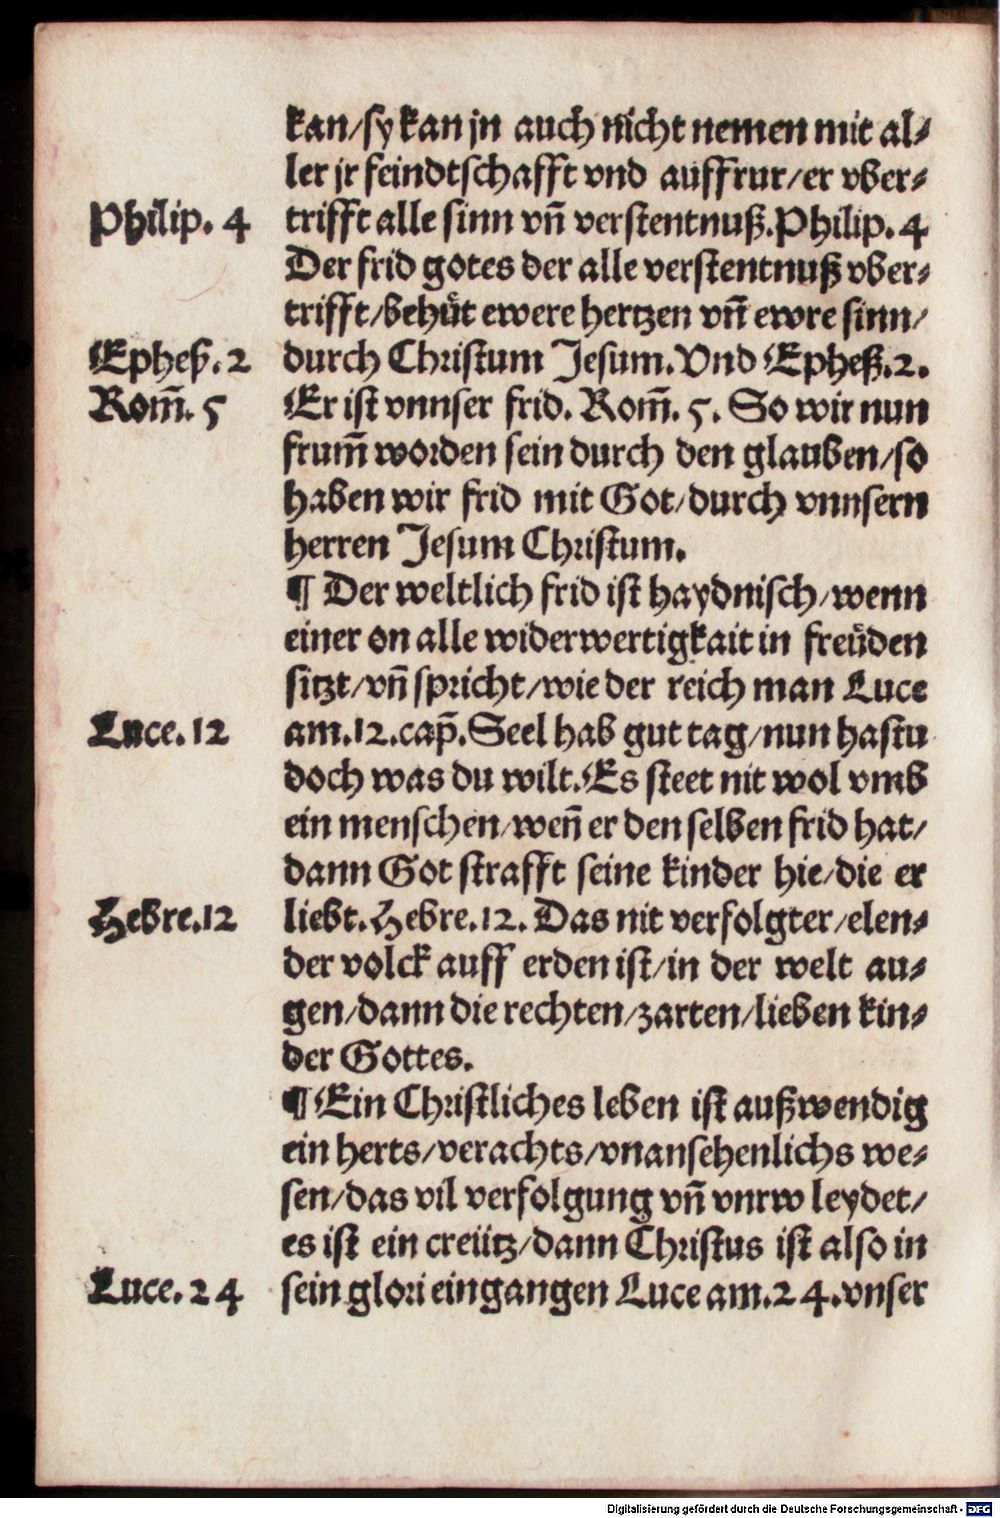 kan/sy kan jn auch nicht nemen mit al⸗
ler jr feindtschafft vnd auffrur/er vber⸗
Philip. 4 trifft alle sinn vñ verstentnuß.Philip.4
Der frid gotes der alle verstentnuß vber⸗
trifft/behuͤt ewere hertzen vñ ewre sinn/
Epheß. 2 durch Christum Jesum.Vnd Epheß.2.
Rom̃. 5 Er ist vnnser frid. Rom̃. 5. So wir nun
frum̃ worden sein durch den glauben/so
haben wir frid mit Got/durch vnnsern
herren Jesum Christum.
¶ Der weltlich frid ist haydnisch/wenn
einer on alle widerwertigkait in freüden
sitzt/vñ spricht/wie der reich man Luce
Luce. 12 am.12.cap̃.Seel hab gut tag/nun hastu
doch was du wilt.Es steet nit wol vmb
ein menschen/weñ er den selben frid hat/
dann Got strafft seine kinder hie/die er
Hebre.12 liebt.Hebre.12. Das nit verfolgter/elen⸗
der volck auff erden ist/in der welt au⸗
gen/dann die rechten/zarten/lieben kin⸗
der Gottes.
¶ Ein Christliches leben ist außwendig
ein herts/verachts/vnansehenlichs we⸗
sen/das vil verfolgung vñ vnrw leydet/
es ist ein creütz/dann Christus ist also in
Luce. 24 sein glori eingangen Luce am.24.vnser
Digitalisierung gefördert durch die Deutsche Forschungsgemeinschaft - DFG